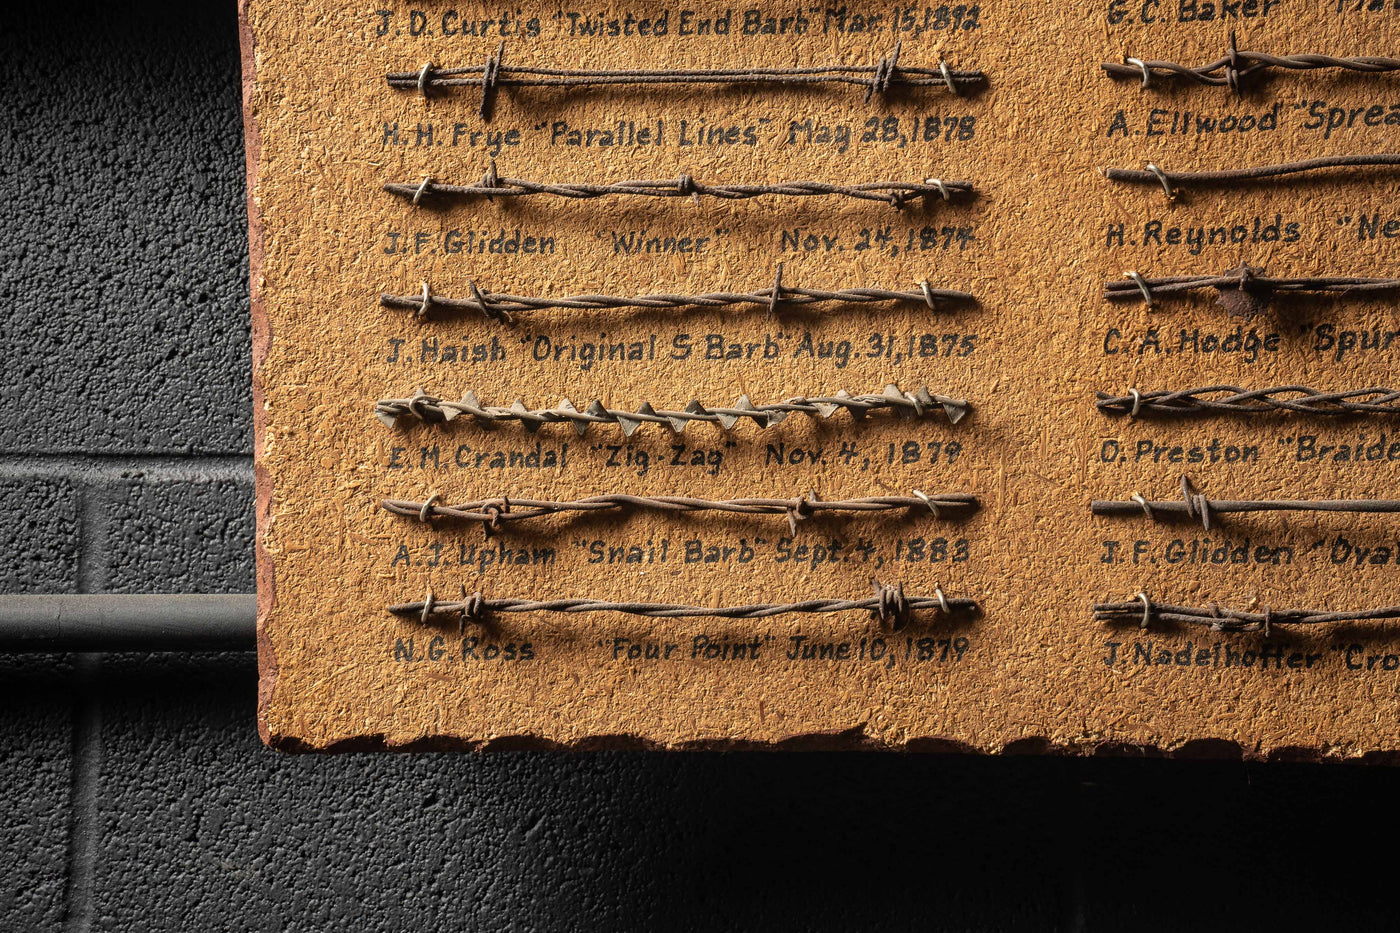 J. D. Curtis "Twisted End Barb" Mar. 15, 1892
H. H. Frye "Parallel Lines" May 28, 1878
J. F. Glidden "Winner" Nov. 24, 1874
J. Haish "Original S Barb" Aug. 31, 1875
E. M. Crandal "Zig-Zag" Nov. 4, 1879
A. J. Upham "Snail Barb" Sept. 4, 1883
N. G. Ross "Four Point" June 10, 1879
G. C. Baker
A. Ellwood "Sprea
H. Reynolds "Ne
C. A. Hodge "Spur
D. Preston "Braide
J. F. Glidden "Ova
J. Nadelhoffer "Cro